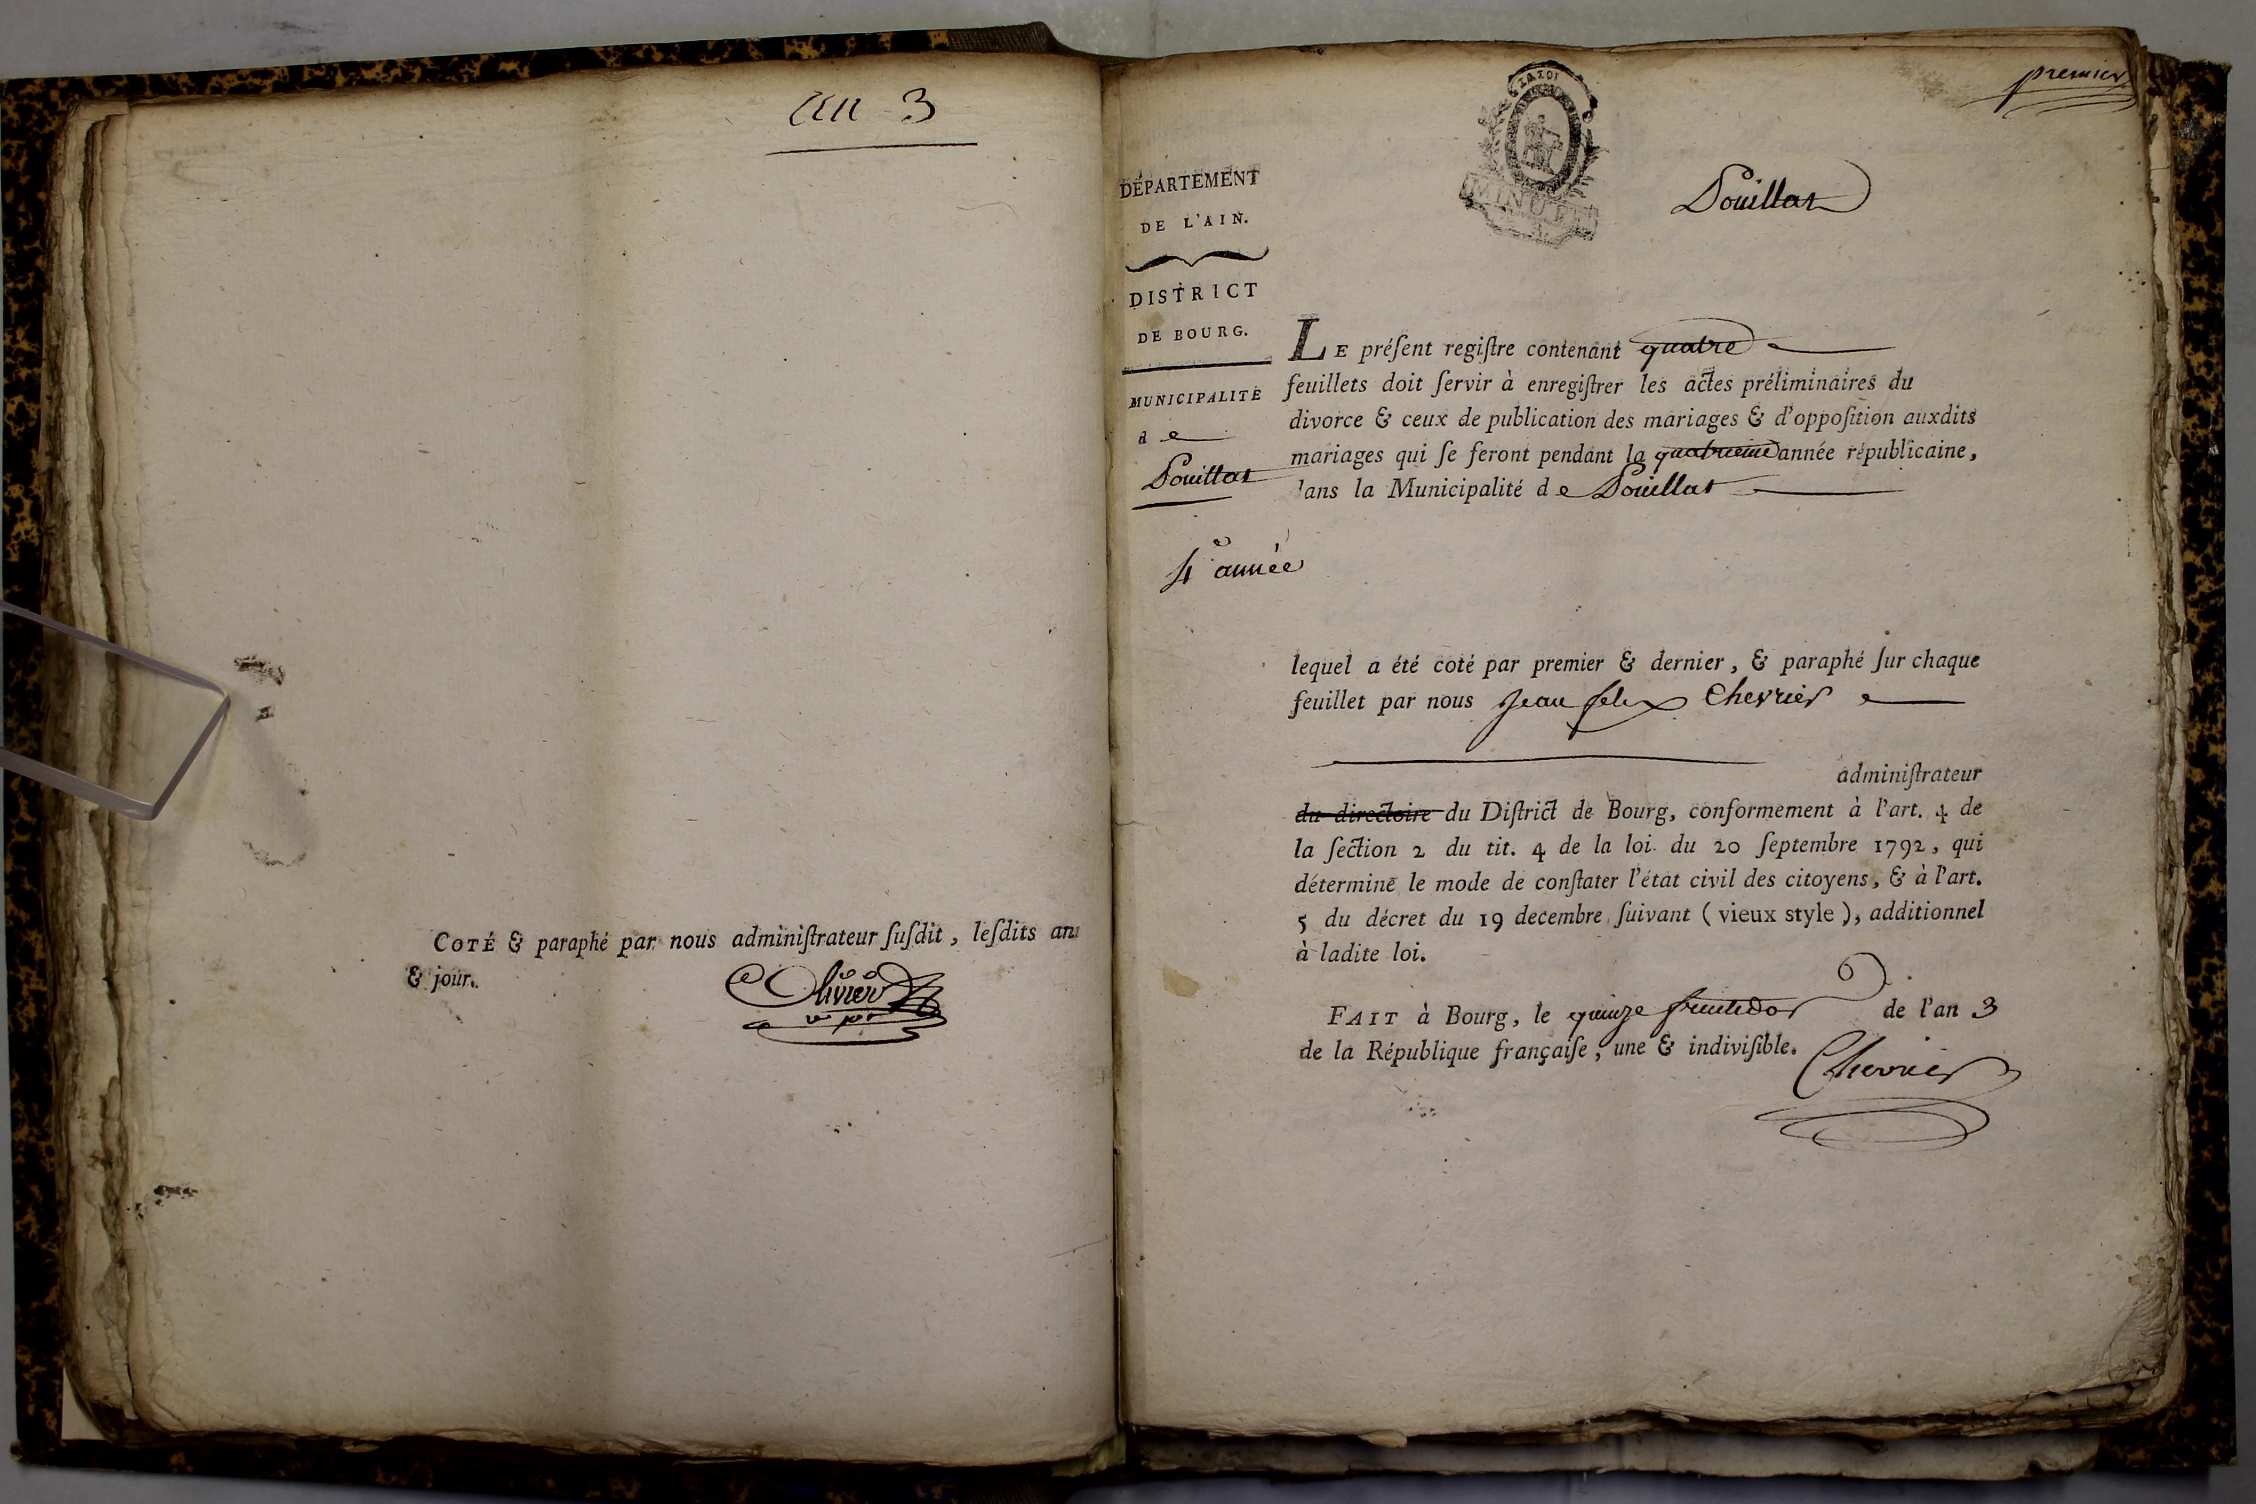 an 3
COTÉ & paraphé par nous adminiſtrateur ſuſdit, leſdits an
& jour.
Olivier
premier
MINUTE
Pouillat
DÉPARTEMENT
DE L'AIN.
DISTRICT
DE BOURG.
MUNICIPALITÉ
de
Pouillat
4e année
LE préſent regiſtre contenant quatre
feuillets doit ſervir à enregiſtrer les actes préliminaires du
divorce & ceux de publication des mariages & d'oppoſition auxdits
mariages qui ſe feront pendant la quatrieme année républicaine,
dans la Municipalité de Pouillat
lequel a été coté par premier & dernier, & paraphé ſur chaque
feuillet par nous Jean felix Chevrier
adminiſtrateur
du directoire du Diſtrict de Bourg, conformement à l'art. 4 de
la ſection 2 du tit. 4 de la loi du 20 ſeptembre 1792, qui
détermine le mode de conſtater l'état civil des citoyens, & à l'art.
5 du décret du 19 decembre ſuivant (vieux style), additionnel
à ladite loi.
FAIT à Bourg, le quinze fructidor de l'an 3
de la République françaiſe, une & indiviſible.
Chevrier